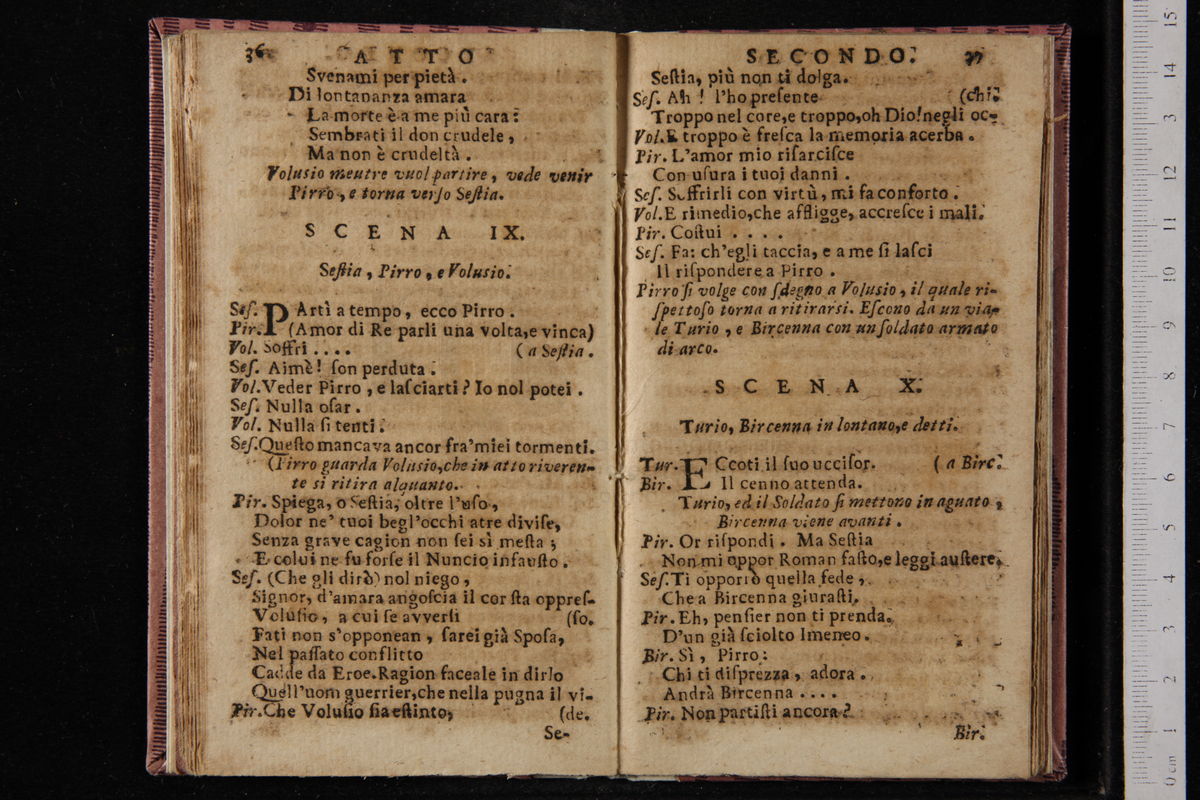 36 ATTO
Svenami per pietà.
Di lontananza amara
La morte è a me più cara:
Sembrati il don crudele,
Ma non è crudeltà.
Volusio mentre vuol partire, vede venir
Pirro, e torna verſo Seſtia.
SCENA IX.
Seſtia, Pirro, e Volusio.
Seſ. PArtì a tempo, ecco Pirro.
Pir. (Amor di Re parli una volta,e vinca)
Vol. Soffri .... (a Seſtia.
Seſ. Aimè! ſon perduta.
Vol.Veder Pirro, e laſciarti? Io nol potei.
Seſ. Nulla oſar.
Vol. Nulla ſi tenti.
Seſ.Queſto mancava ancor fra'miei tormenti.
(Pirro guarda Volusio,che in atto riveren-
te si ritira alquanto.
Pir. Spiega, o Seſtia, oltre l'uſo,
Dolor ne' tuoi begl'occhi atre diviſe,
Senza grave cagion non ſei sì meſta;
E colui ne fu forſe il Nuncio infauſto.
Seſ. (Che gli dirò) nol niego,
Signor, d'amara angoſcia il cor ſta oppreſ-
Voluſio, a cui ſe avverſi (ſo.
Fati non s'opponean, ſarei già Spoſa,
Nel paſſato conflitto
Cadde da Eroe.Ragion faceale in dirlo
Quell'uom guerrier,che nella pugna il vi-
Pir.Che Voluſio ſia eſtinto, (de.
Se-
SECONDO. 37
Seſtia, più non ti dolga.
Seſ. Ah! l'ho preſente (chi.
Troppo nel core,e troppo,oh Dio!negli oc-
Vol.E troppo è freſca la memoria acerba.
Pir. L'amor mio riſarciſce
Con uſura i tuoi danni.
Seſ. Soffrirli con virtù, mi fa conforto.
Vol.E rimedio,che affligge, accreſce i mali.
Pir. Coſtui ....
Seſ. Fa: ch'egli taccia, e a me ſi laſci
Il riſpondere a Pirro.
Pirro ſi volge con ſdegno a Voluſio, il quale ri-
ſpettoſo torna a ritirarsi. Eſcono da un via-
le Turio, e Bircenna con un ſoldato armato
di arco.
SCENA X.
Turio, Bircenna in lontano,e detti.
Tur. ECcoti il ſuo ucciſor. (a Birc.
Bir. Il cenno attenda.
Turio, ed il Soldato ſi mettono in aguato,
Bircenna viene avanti.
Pir. Or riſpondi. Ma Seſtia
Non mi oppor Roman faſto,e leggi auſtere.
Seſ.Ti opporrò quella fede,
Che a Bircenna giuraſti.
Pir. Eh, penſier non ti prenda
D'un già ſciolto Imeneo.
Bir. Sì, Pirro:
Chi ti diſprezza, adora.
Andrà Bircenna ....
Pir. Non partiſti ancora?
Bir.
15
14
13
12
11
10
9
8
7
6
5
4
3
2
1
0 cm